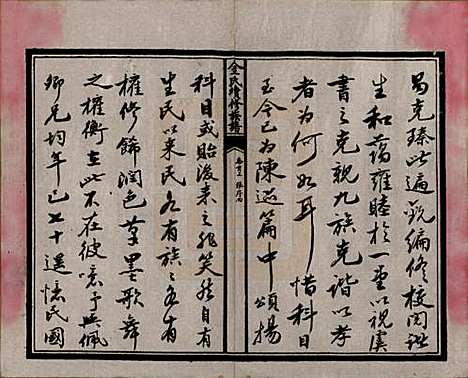 曷克臻此遍覩編修校閱諸
生和藹雍睦於一堂以視虞
書之克親九族克諧以孝
者為何如耳惜科目
至今已為陳迹篇中頌揚
金氏續修族譜
科目或貽後來之非笑然自有
生民以來民各有族之各有
權修飾潤色草墨歌舞
之權衡在此不在彼噫予與佩
卿兄均年已七十遥憶民國